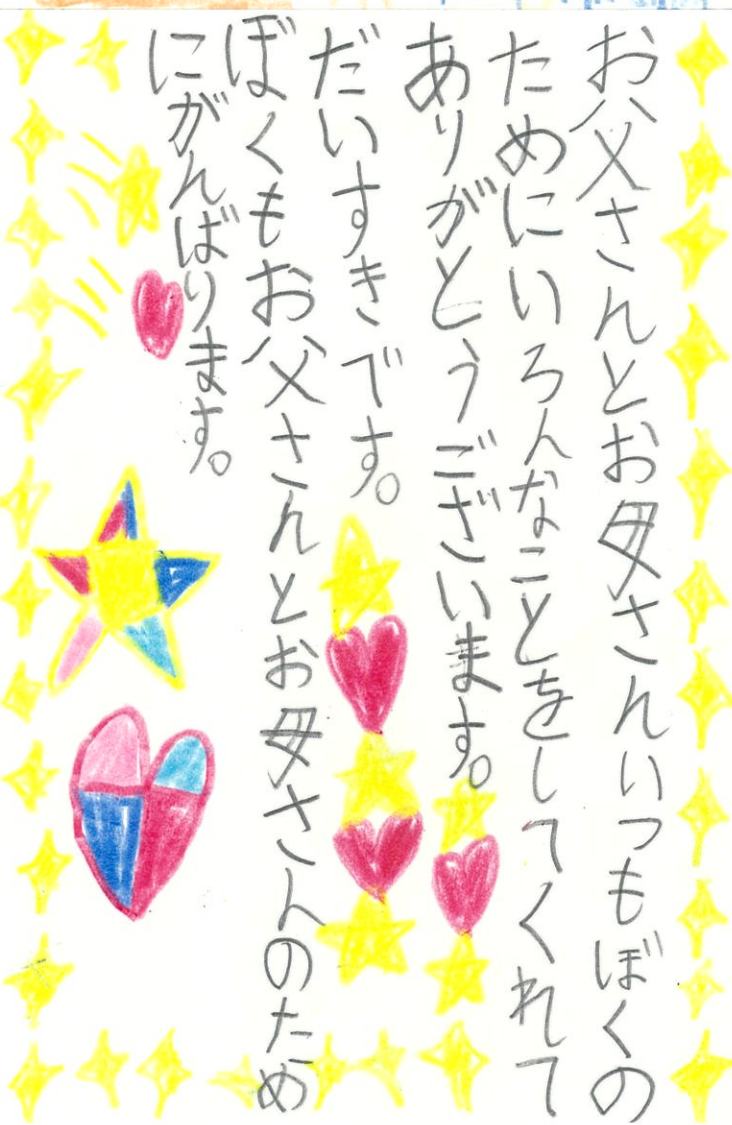 お父さんとお母さんいつもぼくの
ためにいろんなことをしてくれて
ありがとうございます。
だいすきです。
ぼくもお父さんとお母さんのため
にがんばります。